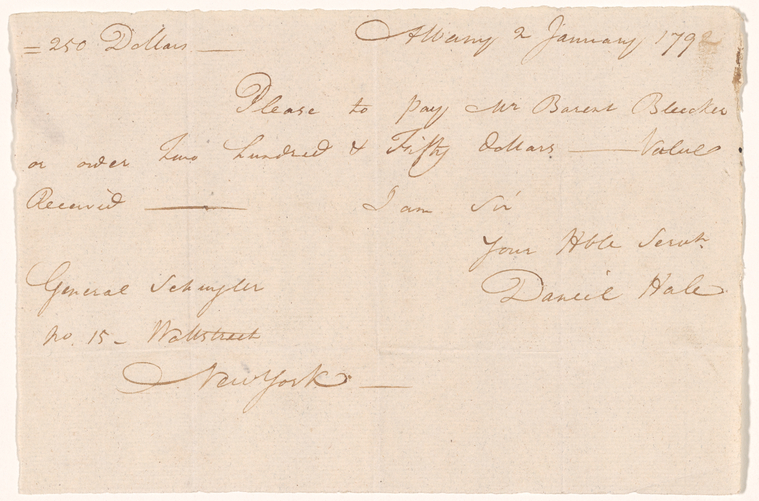 = 250 Dollars — Albany 2 January 1792
Please to pay Mr Barent Bleecker
or order Two hundred & Fifty dollars — Value
Received — I am Sir
Your Hble Servt.
Daniel Hale
General Schuyler
No. 15 - Wallstreet
New York —